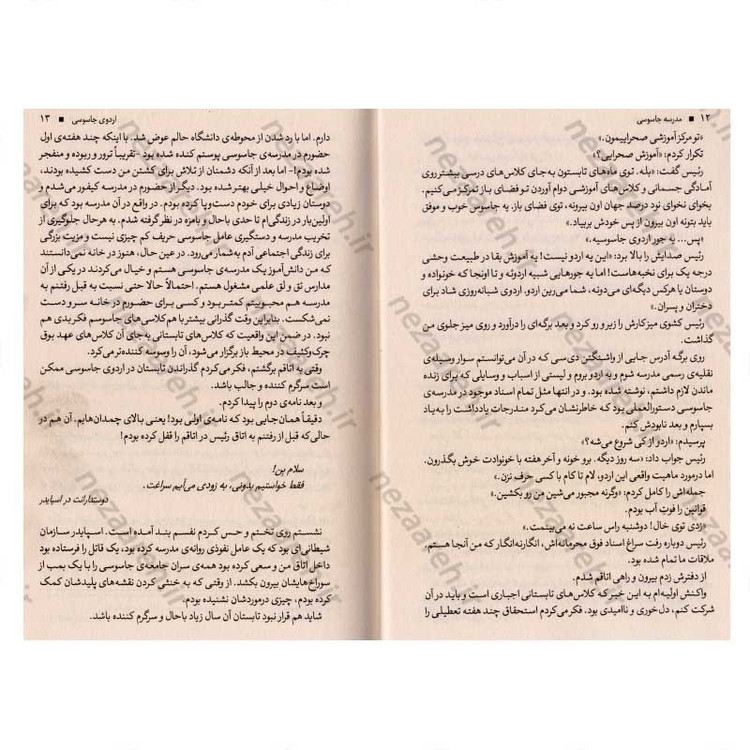 ۱۲ ■ مدرسه جاسوسی
«تو مرکز آموزشی صحراییمون.»
تکرار کردم: «آموزش صحرایی؟»
رئیس گفت: «بله. توی ماه‌های تابستون به‌جای کلاس‌های درسی بیشتر روی
آمادگی جسمانی و کلاس‌های آموزشی دوام آوردن تو فضای باز تمرکز می‌کنیم.
بخوای نخوای نود درصد جهان اون بیرونه، توی فضای باز. یه جاسوس خوب و موفق
باید بتونه اون بیرون از پس خودش بربیاد.»
«پس... یه جور اردوی جاسوسیه.»
رئیس صدایش را بالا برد: «این یه اردو نیست! یه آموزش بقا در طبیعت وحشی
درجه یک برای نخبه‌هاست! اما یه جورهایی شبیه اردوئه و تا اونجا که خونواده و
دوستان یا هرکس دیگه‌ای می‌دونه، شما می‌رین اردو. اردوی شبانه‌روزی شاد برای
دختران و پسران.»
رئیس کشوی میز کارش را زیر و رو کرد و بعد برگه‌ای را درآورد و روی میز جلوی من
گذاشت.
روی برگه آدرس جایی از واشینگتن دی‌سی که در آن می‌توانستم سوار وسیله‌ی
نقلیه‌ی رسمی مدرسه شوم و به اردو بروم و لیستی از اسباب و وسایلی که برای زنده
ماندن لازم داشتم، نوشته شده بود. و در انتها مثل تمام اسناد موجود در مدرسه‌ی
جاسوسی دستورالعملی بود که خاطرنشان می‌کرد مندرجات یادداشت را به‌یاد
بسپارم و بعد نابودش کنم.
پرسیدم: «اردو از کی شروع می‌شه؟»
رئیس جواب داد: «سه روز دیگه. برو خونه و آخر هفته با خونوادت خوش بگذرون.
اما درمورد ماهیت واقعی این اردو، لام تا کام با کسی حرف نزن.»
جمله‌اش را کامل کردم: «وگرنه مجبور می‌شین من رو بکشین.»
قوانین را فوتِ آب بودم.
«زدی توی خال! دوشنبه راس ساعت نه می‌بینمت.»
رئیس دوباره رفت سراغ اسناد فوق محرمانه‌اش، انگارنه‌انگار که من آنجا هستم.
ملاقات ما تمام شده بود.
از دفترش زدم بیرون و راهی اتاقم شدم.
واکنش اولیه‌ام به این خبر که کلاس‌های تابستانی اجباری است و باید در آن
شرکت کنم، دل‌خوری و ناامیدی بود. فکر می‌کردم استحقاق چند هفته تعطیلی را
اردوی جاسوسی ■ ۱۳
دارم. اما با رد شدن از محوطه‌ی دانشگاه حالم عوض شد. با اینکه چند هفته‌ی اول
حضورم در مدرسه‌ی جاسوسی پوستم کنده شده بود -تقریباً ترور و ربوده و منفجر
شده بودم!- اما بعد از آنکه دشمنان از تلاش برای کشتن من دست کشیده بودند،
اوضاع و احوال خیلی بهتر شده بود. دیگر از حضورم در مدرسه کیفور می‌شدم و
دوستان زیادی برای خودم دست‌وپا کرده بودم. در واقع در آن مدرسه بود که برای
اولین‌بار در زندگی‌ام تا حدی باحال و بامزه در نظر گرفته شدم. به هرحال جلوگیری از
تخریب مدرسه و دستگیری عامل جاسوسی حریف کم چیزی نیست و مزیت بزرگی
برای زندگی اجتماعی آدم به‌شمار می‌رود. در عین حال، هنوز در خانه نمی‌دانستند
که من دانش‌آموز یک مدرسه‌ی جاسوسی هستم و خیال می‌کردند در یکی از آن
مدارس تق و لق علمی مشغول هستم. احتمالاً حالا حتی نسبت به قبل رفتنم به
مدرسه هم محبوبیتم کمتر بود و کسی برای حضورم در خانه سر و دست
نمی‌شکست. بنابراین وقت گذرانی بیشتر با هم‌کلاسی‌های جاسوسم فکر بدی هم
نبود. در ضمن این واقعیت که کلاس‌های تابستانی به‌جای آن کلاس‌های عهد بوق
چرک‌وکثیف در محیط باز برگزار می‌شود، آن را وسوسه کننده‌تر می‌کرد.
وقتی به اتاقم برگشتم، فکر می‌کردم گذراندن تابستان در اردوی جاسوسی ممکن
است سرگرم کننده و جالب باشد.
و بعد نامه‌ی دوم را پیدا کردم.
دقیقاً همان‌جایی بود که نامه‌ی اولی بود! یعنی بالای چمدان‌هایم. آن هم در
حالی‌که قبل از رفتنم به اتاق رئیس در اتاقم را قفل کرده بودم!
سلام بِن!
فقط خواستیم بدونی، به زودی می‌آییم سراغت.
دوستدارانت در اسپایدر
نشستم روی تختم و حس کردم نفسم بند آمده است. اسپایدر سازمان
شیطانی‌ای بود که یک عامل نفوذی روانه‌ی مدرسه کرده بود، یک قاتل را فرستاده بود
داخل اتاق من و سعی کرده بود همه‌ی سران جامعه‌ی جاسوسی را با یک بمب از
سوراخ‌هایشان بیرون بکشد. از وقتی که به خنثی کردن نقشه‌های پلیدشان کمک
کرده بودم، چیزی درموردشان نشنیده بودم.
شاید هم قرار نبود تابستان آن سال زیاد باحال و سرگرم کننده باشد.
nezaaleh.ir